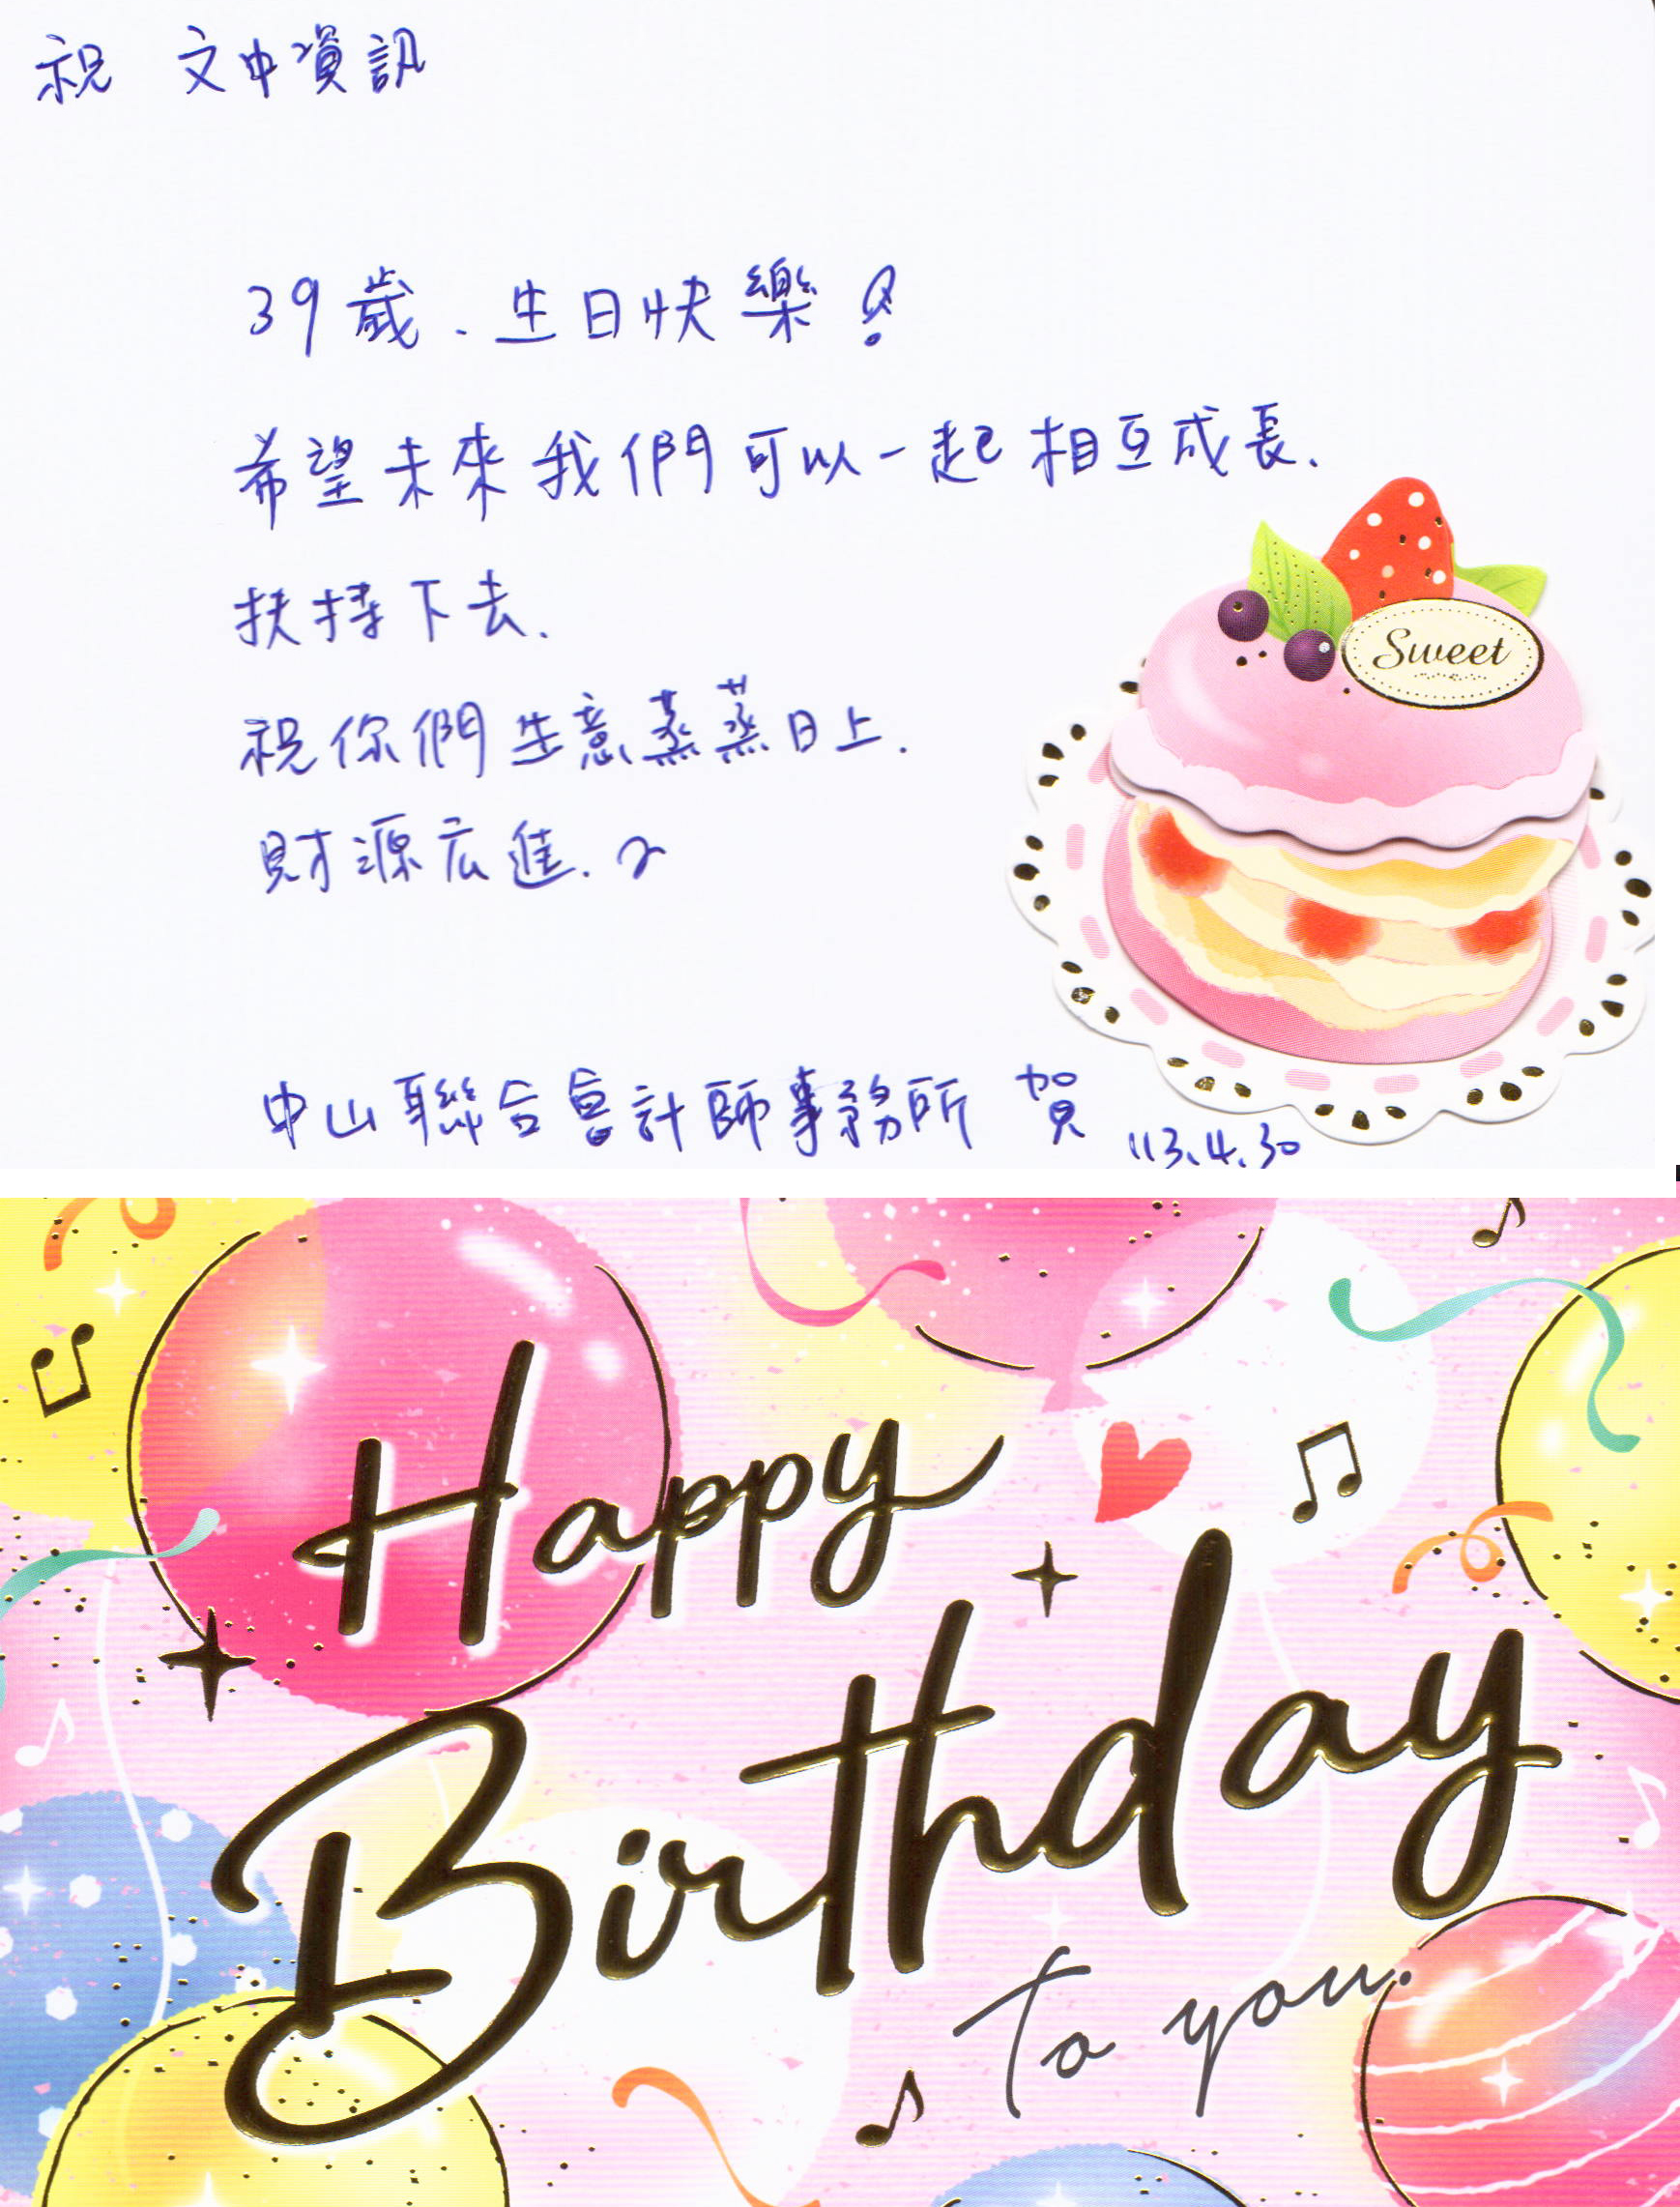 祝 文中資訊
39歲、生日快樂!
希望未來我們可以一起相互成長、
扶持下去、
祝你們生意蒸蒸日上、
財源広進、~
Sweet
中山聯合會計師事務所 賀
113.4.30
Happy
Birthday
to you.